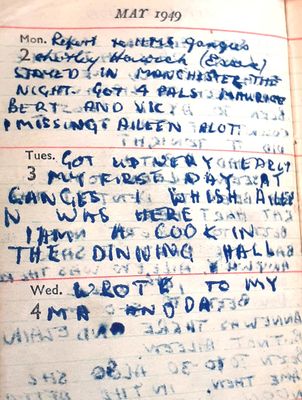 MAY 1949
Mon. Report to HMS Ganges
2 Shotley Harwich
STAYED IN MANCHESTER THE
NIGHT. GOT 4 PALS. MAURICE
BERT AND VIC
I MISSING AILEEN ALOT.
Tues. GOT UP VERY EARLY
3 MY FIRST DAY AT
GANGES I WHISH AILEE
N WAS HERE
I AM A COOK IN
THE DINNING HALL
Wed. WROTE TO MY
4 MA AND DA